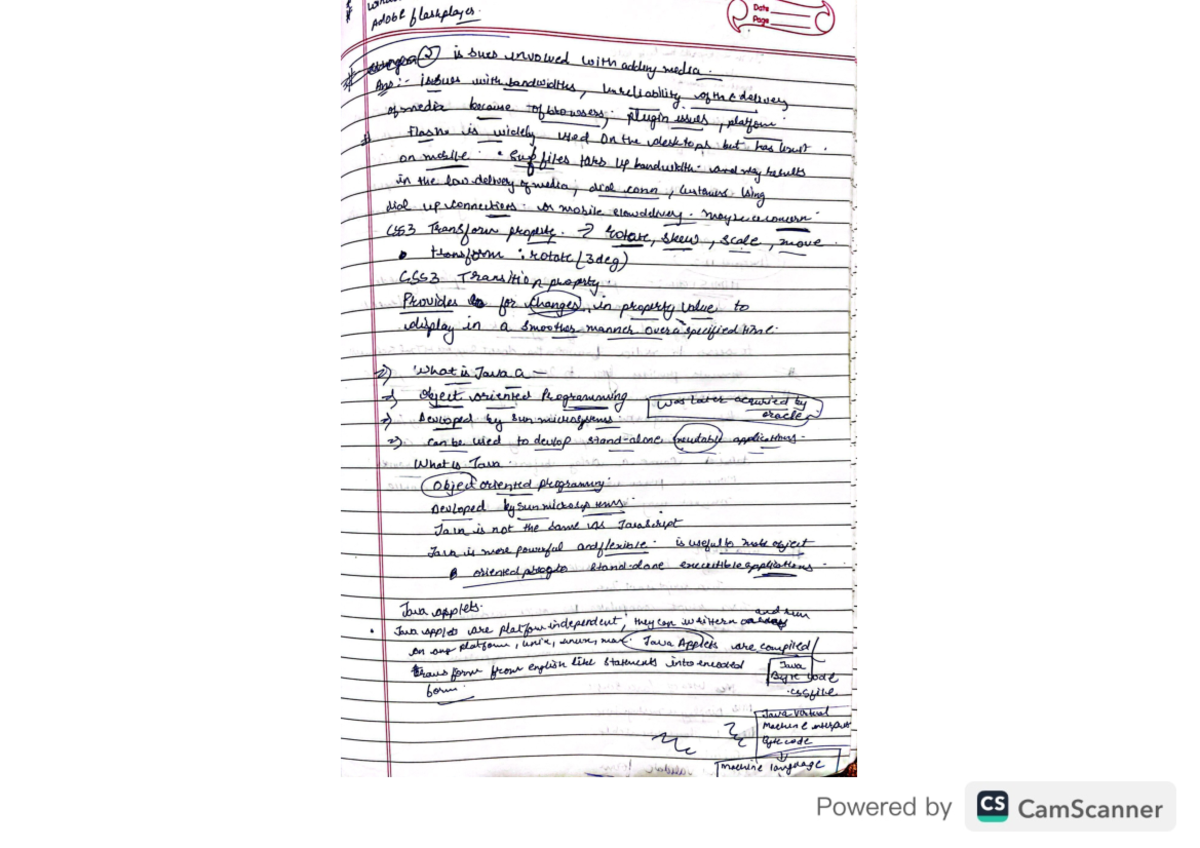 Adobe flashplayer.
Date
Page
# (2) issues involved with adding media.
Ans:- issues with bandwidths, unreliability of the delivery
of media because of browsers, plugin issues, platform
# flash is widely used on the desktops but has limit.
on mobile. files up bandwidth and may results
in the low delivery of media, dial conn, customers using
dial up connections or mobile slow delivery. may be a concern.
CSS3 Transform property. → rotate, skew, scale, move
• transform : rotate(3deg)
CSS3 Transition property.
Provides for changes in property value to
display in a smoother manner over a specified time.
What is Java a —
object oriented Programming
was later acquired by
oracle.
Devloped by Sun microsystems
can be used to devlop stand-alone applications.
What is Java
Object oriented programming.
Devloped by Sun microsystems
Java is not the same as Javascript
Java is more powerful and flexible. is useful to make object
oriented stand-alone applications.
Java applets.
and run
• Java applets are platform independent, they can written
on any platform, unix, mac. Java Applets are compiled/
transform from english like statements into encoded
form.
Java
Byte code
Java virtual
Machine interpret
Byte code
machine language
Powered by CS CamScanner